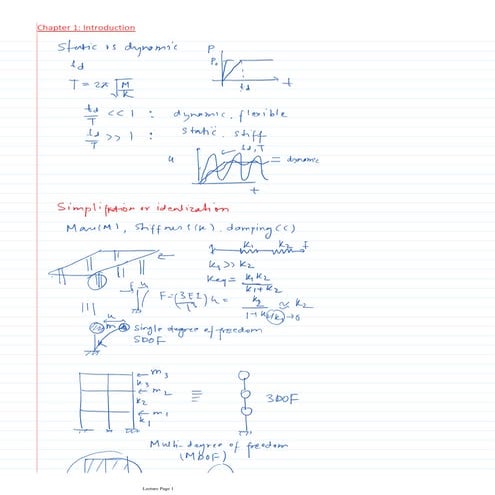 Chapter 1: Introduction
Static vs dynamic
P
P₀
t
td
T = 2π √M/K
td/T << 1 : dynamic. flexible
td/T >> 1 : static. stiff
td, T
u
= dynamic
t
Simplification or idealization
Mass(M), stiffness(K), damping(C)
K₁ K₂ f
K₁ >> K₂
Keq = K₁K₂/K₁+K₂
f u
F = (3EI/L³) u
≈ K₂
→ 0
u
m
Single degree of freedom
SDOF
m₃
k₃
m₂
k₂
m₁
k₁
≡
3DOF
Multi-degree of freedom
(MDOF)
Lecture Page 1